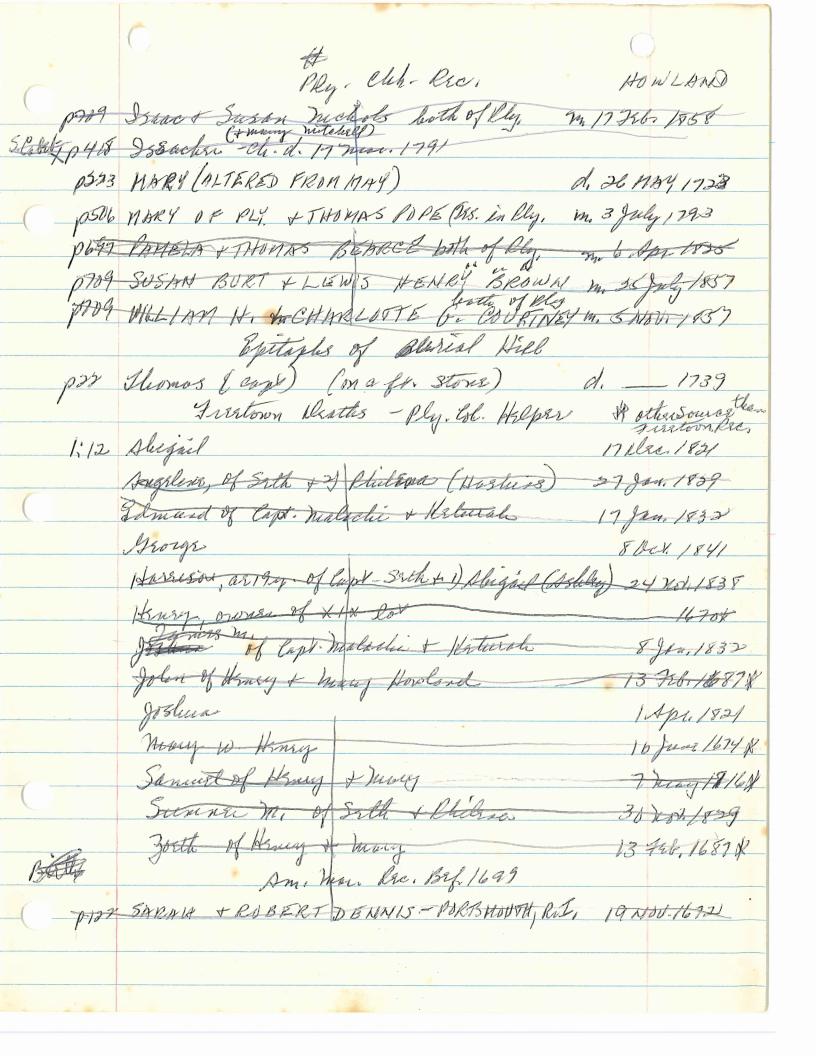 #
Ply. Chh. Rec. HOWLAND
p709 Isaac + Susan Nichols both of Ply. m. 17 Feb. 1858
(+ Mary Mitchell)
p418 Isaacher - Ch. d. 17 1791
p223 MARY (ALTERED FROM MAY) d. 26 MAY 1723
p506 MARY OF PLY. + THOMAS POPE (Res. in Ply. m. 3 July 1793
p697 PAMELA + THOMAS BEARCE both of Ply. m. 6 Apr. 1825
p709 SUSAN BURT + LEWIS HENRY BROWN " " " m. 25 July 1857
both of Ply
p709 WILLIAM H. + CHARLOTTE G. COURTNEY m. 5 NOV. 1857
Epitaphs of Burial Hill
p22 Thomas (capt) (on a ft. stone) d. ___ 1739
Freetown Deaths - Ply. Col. Helper # other Source than
Freetown Rec.
1:12 Abigail 17 Dec. 1821
Angeline, of Seth + 2) Philena (Haskins) 27 Jan. 1829
Edmund of Capt. Malachi + Keturah 17 Jan. 1832
George 8 Oct. 1841
Harrison, of Capt. Seth + 1) Abigail (Ashley) 24 Nov. 1838
Henry, owner of XIX lot 1670#
James M.
Joshua of Capt. Malachi + Keturah 8 Jan. 1832
John of Henry + Mary Howland 13 Feb. 1687#
Joshua 1 Apr. 1821
Mary w. Henry 16 June 1674#
Samuel of Henry + Mary 7 May 1716#
Sumner M. of Seth + Philena 30 Nov. 1829
Zoeth of Henry + Mary 13 Feb. 1687#
Am. Mar. Rec. Bef. 1699
p122 SARAH + ROBERT DENNIS - PORTSMOUTH, R.I. 19 NOV. 1672